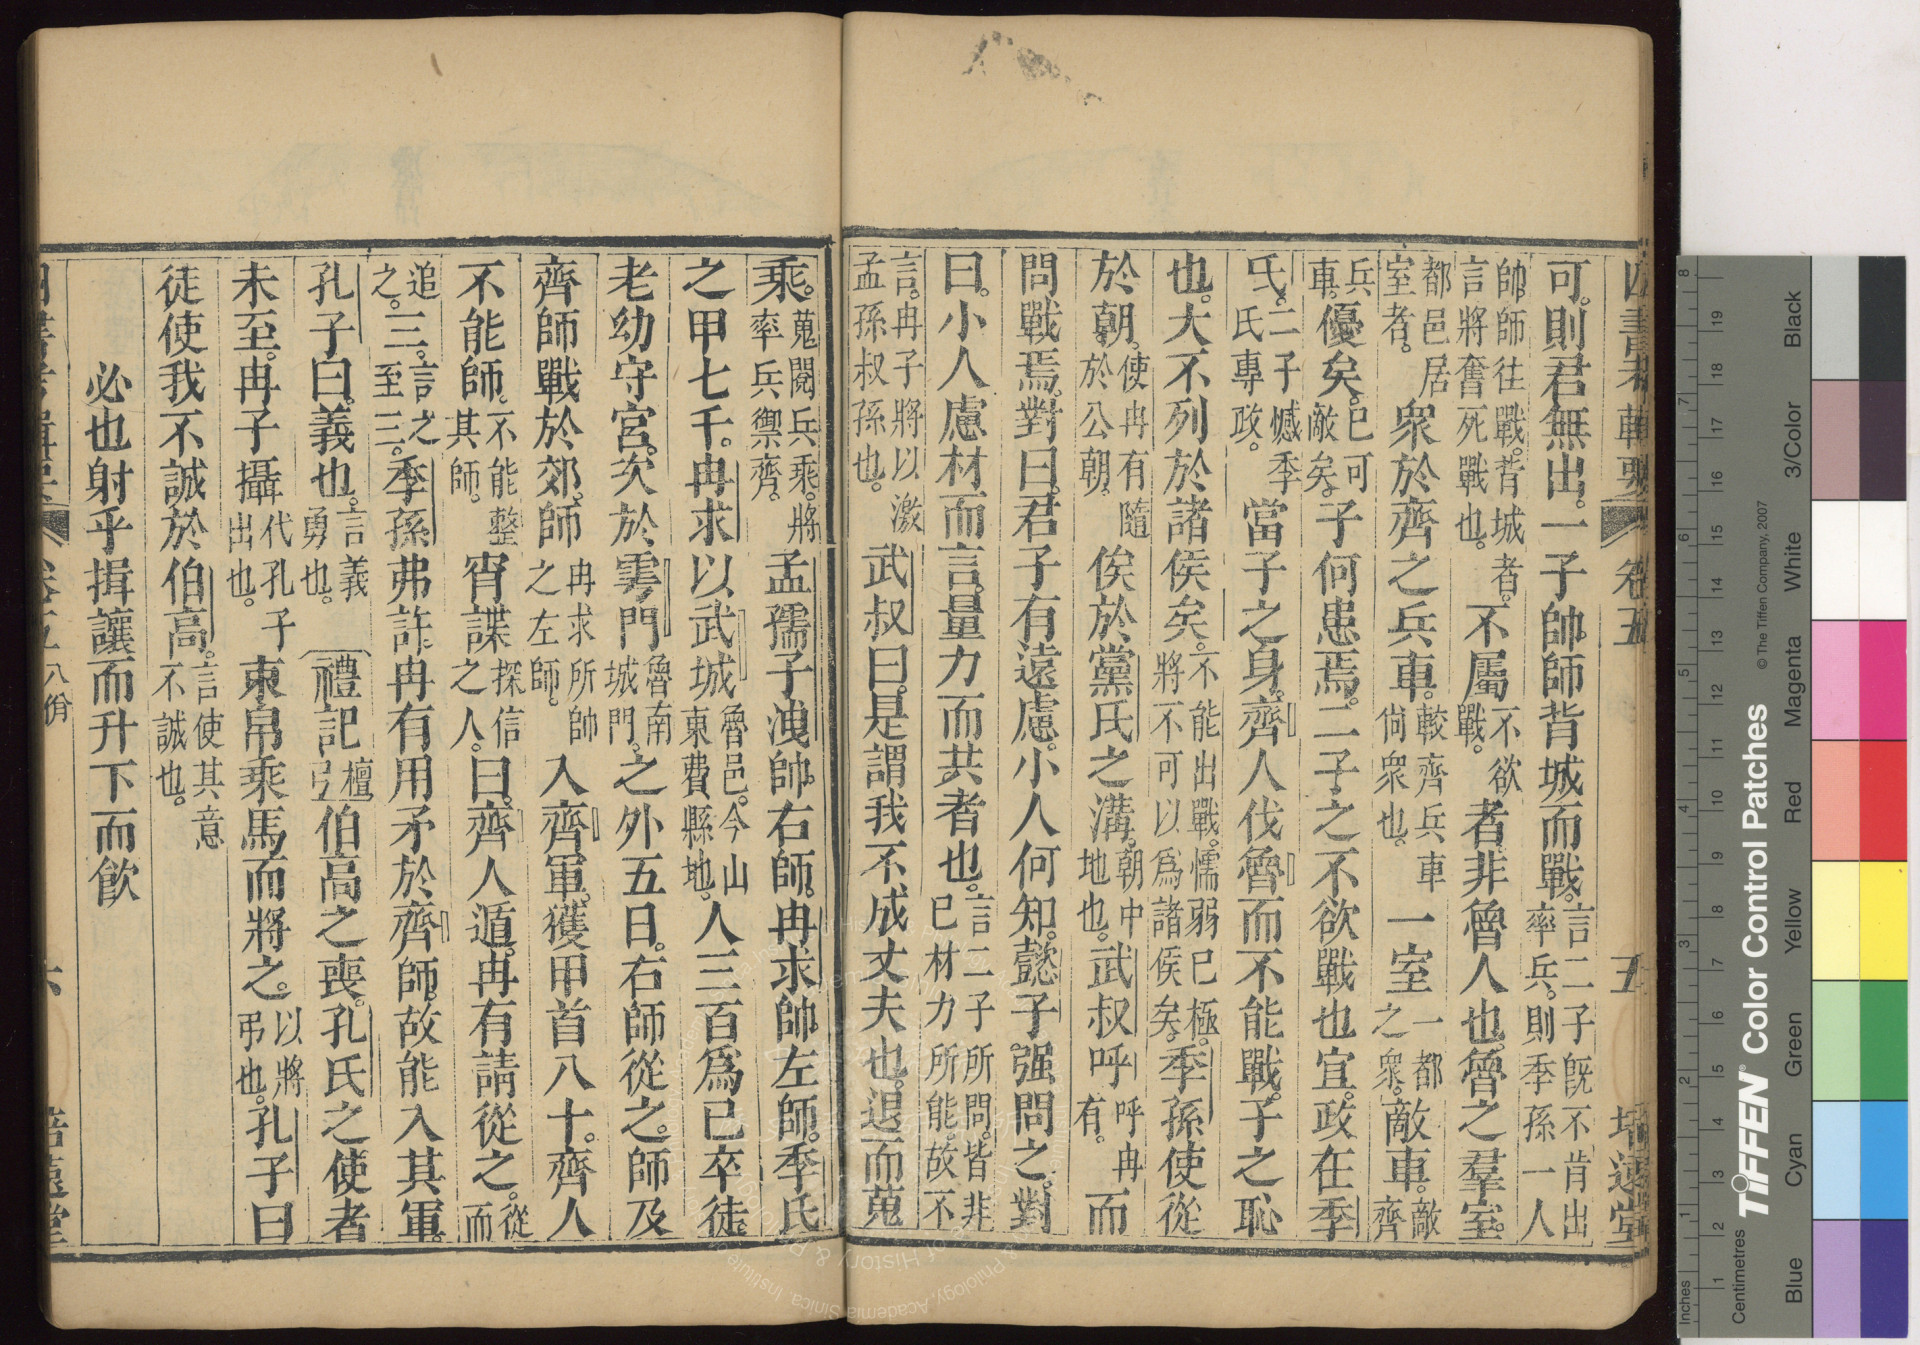 四書考輯要 卷五 五 培遠堂
可。則君無出。一子帥師背城而戰。言二子既不肯出率兵。則季孫一人
帥師往戰。背城者。言將奮死戰也。不屬不欲戰。者非魯人也。魯之羣室。
都邑居室者。衆於齊之兵車。較齊兵車尚衆也。一室一都之衆。敵車。敵齊
兵車。優矣。已可敵矣。子何患焉。二子之不欲戰也宜。政在季
氏。二子憾季氏專政。當子之身。齊人伐魯而不能戰。子之恥
也。大不列於諸侯矣。不能出戰。懦弱已極。將不可以爲諸侯矣。季孫使從
於朝。使冉有隨於公朝。俟於黨氏之溝。朝中地也。武叔呼呼冉有。而
問戰焉。對曰。君子有遠慮。小人何知。懿子强問之。對
曰。小人慮材而言。量力而共者也。言二子所問。皆非己材力所能。故不
言。冉子將以激孟孫叔孫也。武叔曰。是謂我不成丈夫也。退而蒐
乘。蒐閱兵乘。將率兵禦齊。孟孺子洩帥右師。冉求帥左師。季氏
之甲七千。冉求以武城魯邑。今山東費縣地。人三百爲己卒徒
老幼守宮。次於雩門魯南城門。之外五日。右師從之。師及
齊師戰於郊。師冉求所帥之左師。入齊軍。獲甲首八十。齊人
不能師。不能整其師。宵諜探信之人。曰。齊人遁。冉有請從之。從而
追之。三。言之至三。季孫弗許。冉有用矛於齊師。故能入其軍。
孔子曰。義也。言義勇也。禮記檀弓伯高之喪。孔氏之使者
未至。冉子攝代孔子出也。束帛乘馬而將之。以將弔也。孔子曰
徒使我不誠於伯高。言使其意不誠也。
必也射乎揖讓而升下而飮
四書考輯要 卷五 八佾 六 培遠堂